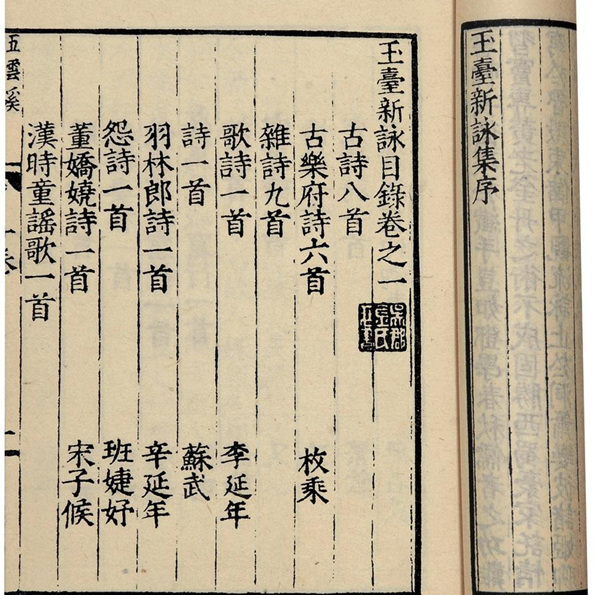 玉臺新詠集序
玉臺新詠目錄卷之一
古詩八首
古樂府詩六首 枚乘
雜詩九首
歌詩一首 李延年
詩一首 蘇武
羽林郎詩一首 辛延年
怨詩一首 班婕妤
董嬌嬈詩一首 宋子候
漢時童謠歌一首
五雲溪
二